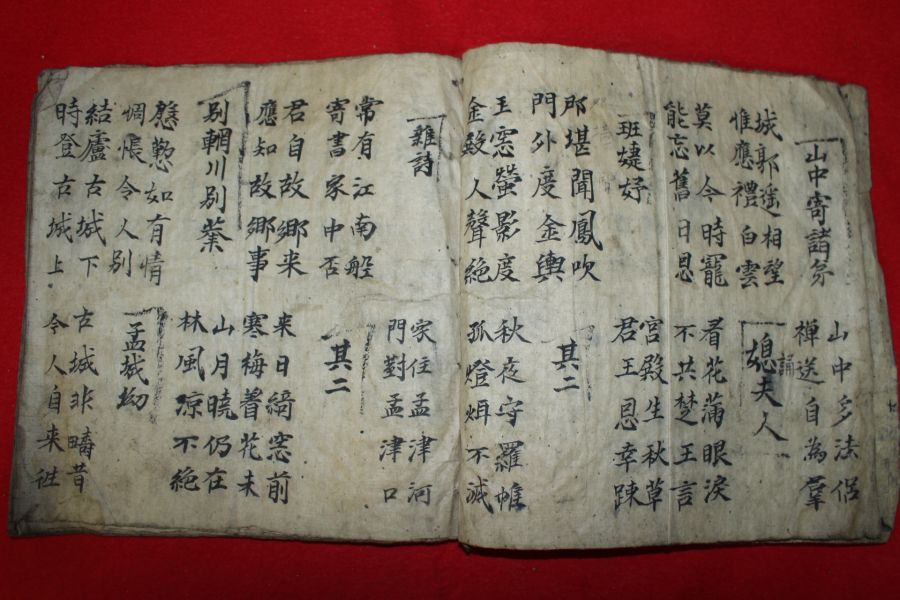 山中寄諸弟
山中多法侶
禅送誦自為羣
城郭遥相望
惟應禮白雲
媳夫人
莫以今時寵
能忘舊日恩
看花蒲眼淚
不共楚王言
班婕妤
宮殿生秋草
君王恩幸踈
那堪聞鳳吹
門外度金輿
其二
玉窓螢影度
金殿人聲絶
秋夜守羅帷
孤燈煒不滅
雜詩
家住孟津河
門對孟津口
常有江南船
寄書家中否
其二
君自故鄉来
應知故鄉事
来日綺窓前
寒梅着花未
别輞川别業
山月曉仍在
林風凉不絶
慇懃如有情
惆悵令人别
孟城坳
結廬古城下
時登古城上
古城非疇昔
今人自来往